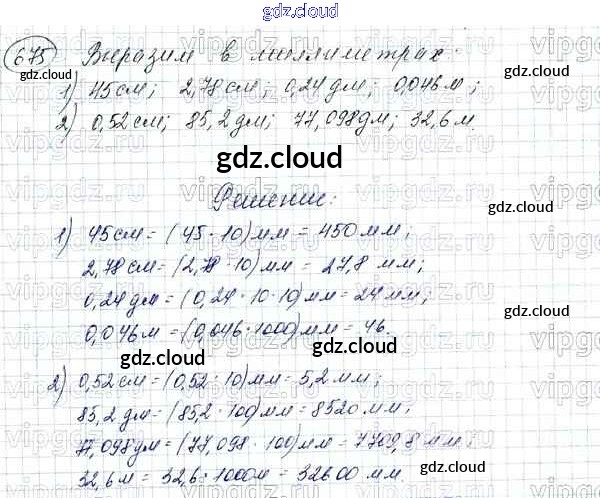 gdz.cloud
675 Выразим в миллиметрах:
gdz.cloud
gdz.cloud
1) 45 см; 2,78 см; 0,24 дм; 0,046 м;
2) 0,52 см; 85,2 дм; 77,098 дм; 32,6 м.
gdz.cloud
Решение:
gdz.cloud
gdz.cloud
1) 45 см = (45 · 10) мм = 450 мм;
2,78 см = (2,78 · 10) мм = 27,8 мм;
0,24 дм = (0,24 · 10 · 10) мм = 24 мм;
gdz.cloud
0,046 м = (0,046 · 1000) мм = 46.
gdz.cloud
gdz.cloud
2) 0,52 см = (0,52 · 10) мм = 5,2 мм;
85,2 дм = (85,2 · 100) мм = 8520 мм;
gdz.cloud
77,098 дм = (77,098 · 100) мм = 7709,8 мм;
gdz.cloud
32,6 м = 32,6 · 1000 м = 32600 мм.
gdz.cloud